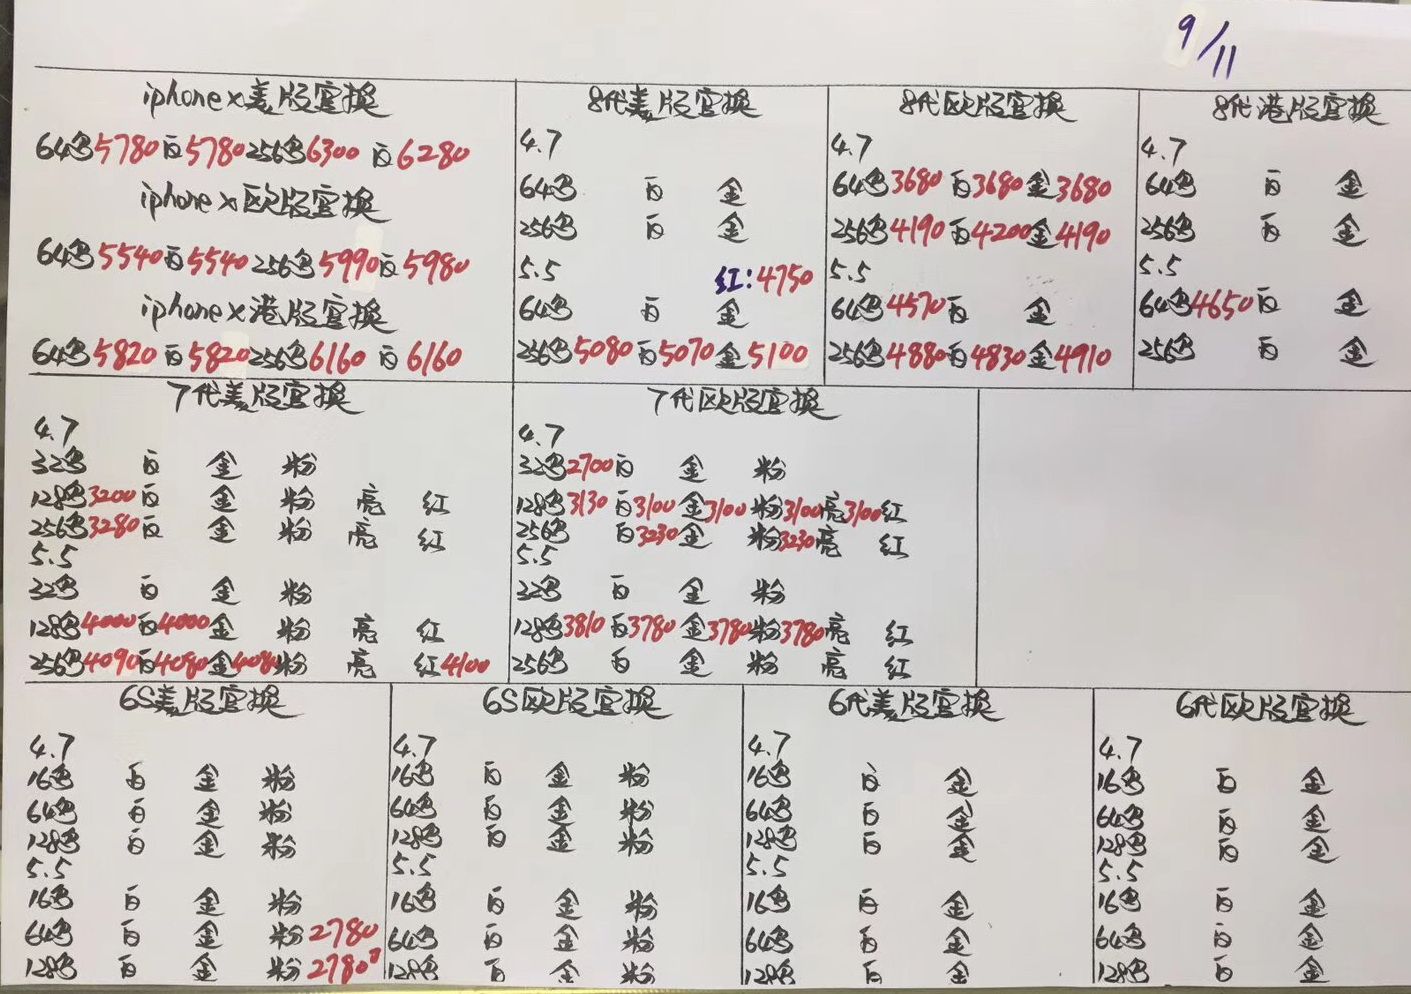 9/11
iphone x美版官换
64黑5780白5780256黑6300白6280
iphone x欧版官换
64黑5540白5540 256黑5990白5980
iphone x港版官换
64黑5820白5820256黑6160白6160
8代美版官换
4.7
64黑 白 金
256黑 白 金
5.5 红:4750
64黑 白 金
256黑5080白5070金5100
8代欧版官换
4.7
64黑3680白3680金3680
256黑4190白4200金4190
5.5
64黑4570白 金
256黑4880白4830金4910
8代港版官换
4.7
64黑 白 金
256黑 白 金
5.5
64黑4650白 金
256黑 白 金
7代美版官换
4.7
32黑 白 金 粉
128黑3200白 金 粉 亮 红
256黑3280白 金 粉 亮 红
5.5
32黑 白 金 粉
128黑4000白4000金 粉 亮 红
256黑4090白4080金4080粉 亮 红4100
7代欧版官换
4.7
32黑2700白 金 粉
128黑3130白3100金3100粉3100亮3100红
256黑 白3230金 粉3230亮 红
5.5
32黑 白 金 粉
128黑3810白3780金3780粉3780亮 红
256黑 白 金 粉 亮 红
6S美版官换
4.7
16黑 白 金 粉
64黑 白 金 粉
128黑 白 金 粉
5.5
16黑 白 金 粉
64黑 白 金 粉2780
128黑 白 金 粉2780
6S欧版官换
4.7
16黑 白 金 粉
64黑 白 金 粉
128黑 白 金 粉
5.5
16黑 白 金 粉
64黑 白 金 粉
128黑 白 金 粉
6代美版官换
4.7
16黑 白 金
64黑 白 金
128黑 白 金
5.5
16黑 白 金
64黑 白 金
128黑 白 金
6代欧版官换
4.7
16黑 白 金
64黑 白 金
128黑 白 金
5.5
16黑 白 金
64黑 白 金
128黑 白 金